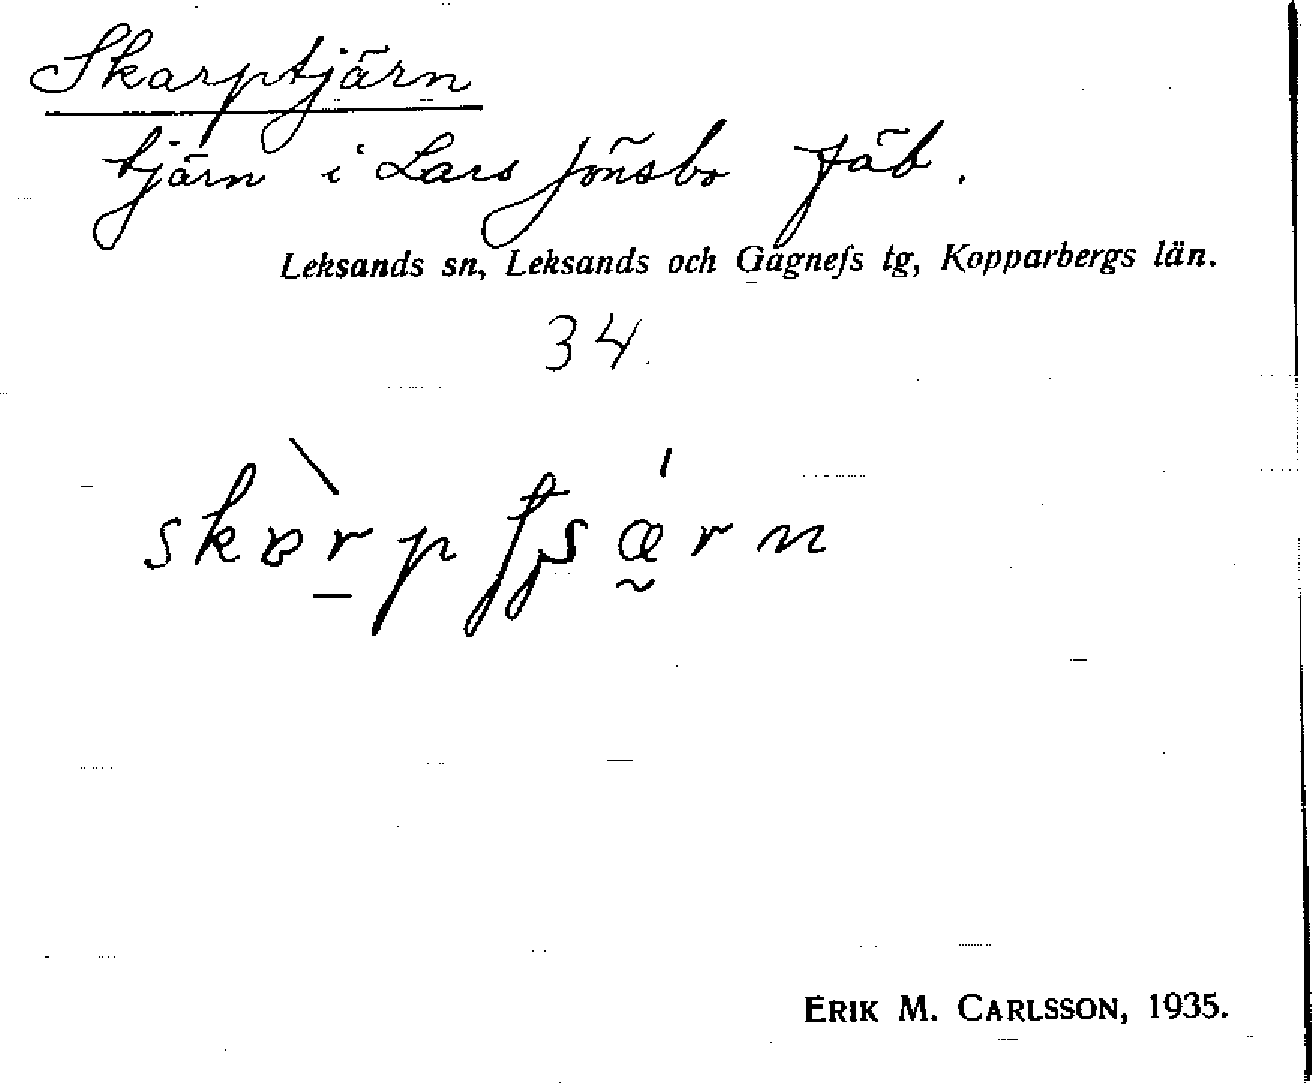 Skarptjärn
tjärn i Lars Jönsbo fäb.
Leksands sn, Leksands och Gagnefs tg, Kopparbergs län.
34.
ERIK M. CARLSSON, 1935.